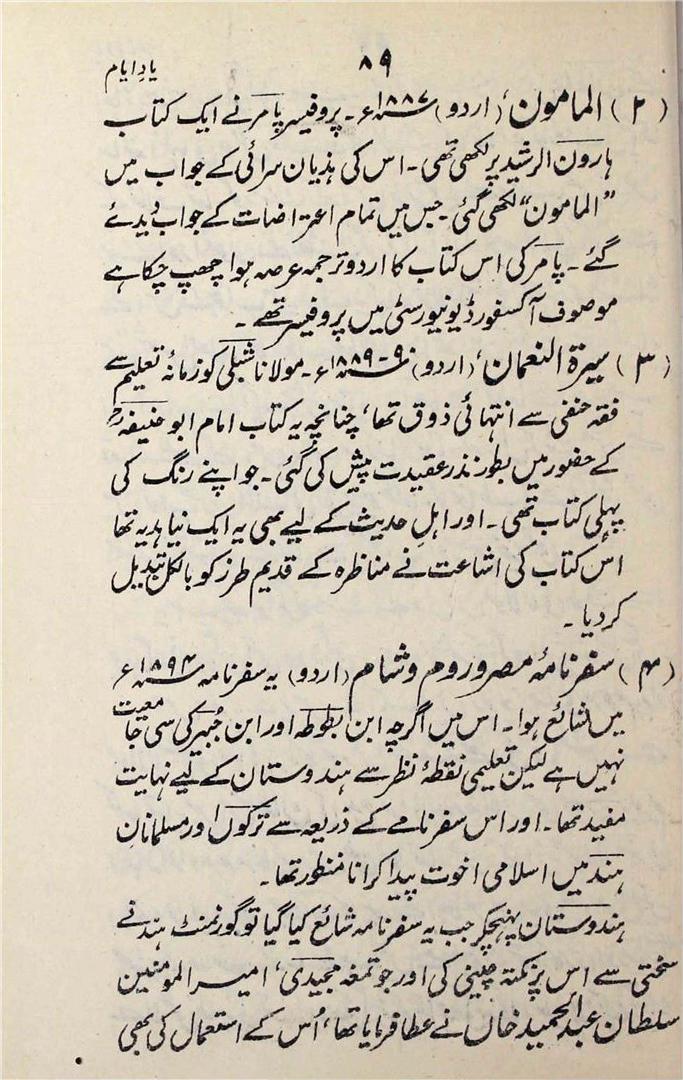 ۸۹
یادِ ایام
(۲) المامون، (اردو) ۱۸۸۷ء۔ پروفیسر پامر نے ایک کتاب
ہارون الرشید پر لکھی تھی۔ اس کی ہذیان سرائی کے جواب میں
”المامون“ لکھی گئی۔ جس میں تمام اعتراضات کے جواب دیدئے
گئے۔ پامر کی اس کتاب کا اردو ترجمہ عرصہ ہوا چھپ چکا ہے
موصوف آکسفورڈ یونیورسٹی میں پروفیسر تھے۔
(۳) سیرۃ النعمان، (اردو) ۹۰-۱۸۸۹ء۔ مولانا شبلی کو زمانۂ تعلیم سے
فقہ حنفی سے انتہائی ذوق تھا، چنانچہ یہ کتاب امام ابو حنیفہؒ
کے حضور میں بطور نذر عقیدت پیش کی گئی۔ جو اپنے رنگ کی
پہلی کتاب تھی۔ اور اہلِ حدیث کے لیے بھی یہ ایک نیا ہدیہ تھا
اس کتاب کی اشاعت نے مناظرہ کے قدیم طرز کو بالکل تبدیل
کر دیا۔
(۴) سفرنامۂ مصر و روم و شام (اردو) یہ سفرنامہ ۱۸۹۴ء
میں شائع ہوا۔ اس میں اگرچہ ابن بطوطہ اور ابن جُبیر کی سی جامعیت
نہیں ہے لیکن تعلیمی نقطۂ نظر سے ہندوستان کے لیے نہایت
مفید تھا۔ اور اس سفرنامے کے ذریعہ سے ترکوں اور مسلمانانِ
ہند میں اسلامی اخوت پیدا کرانا منظور تھا۔
ہندوستان پہنچکر جب یہ سفرنامہ شائع کیا گیا تو گورنمنٹ ہند نے
سختی سے اس پر نکتہ چینی کی اور جو تمغہ مجیدی، امیر المومنین
سلطان عبدالحمید خاں نے عطا فرمایا تھا، اُس کے استعمال کی بھی